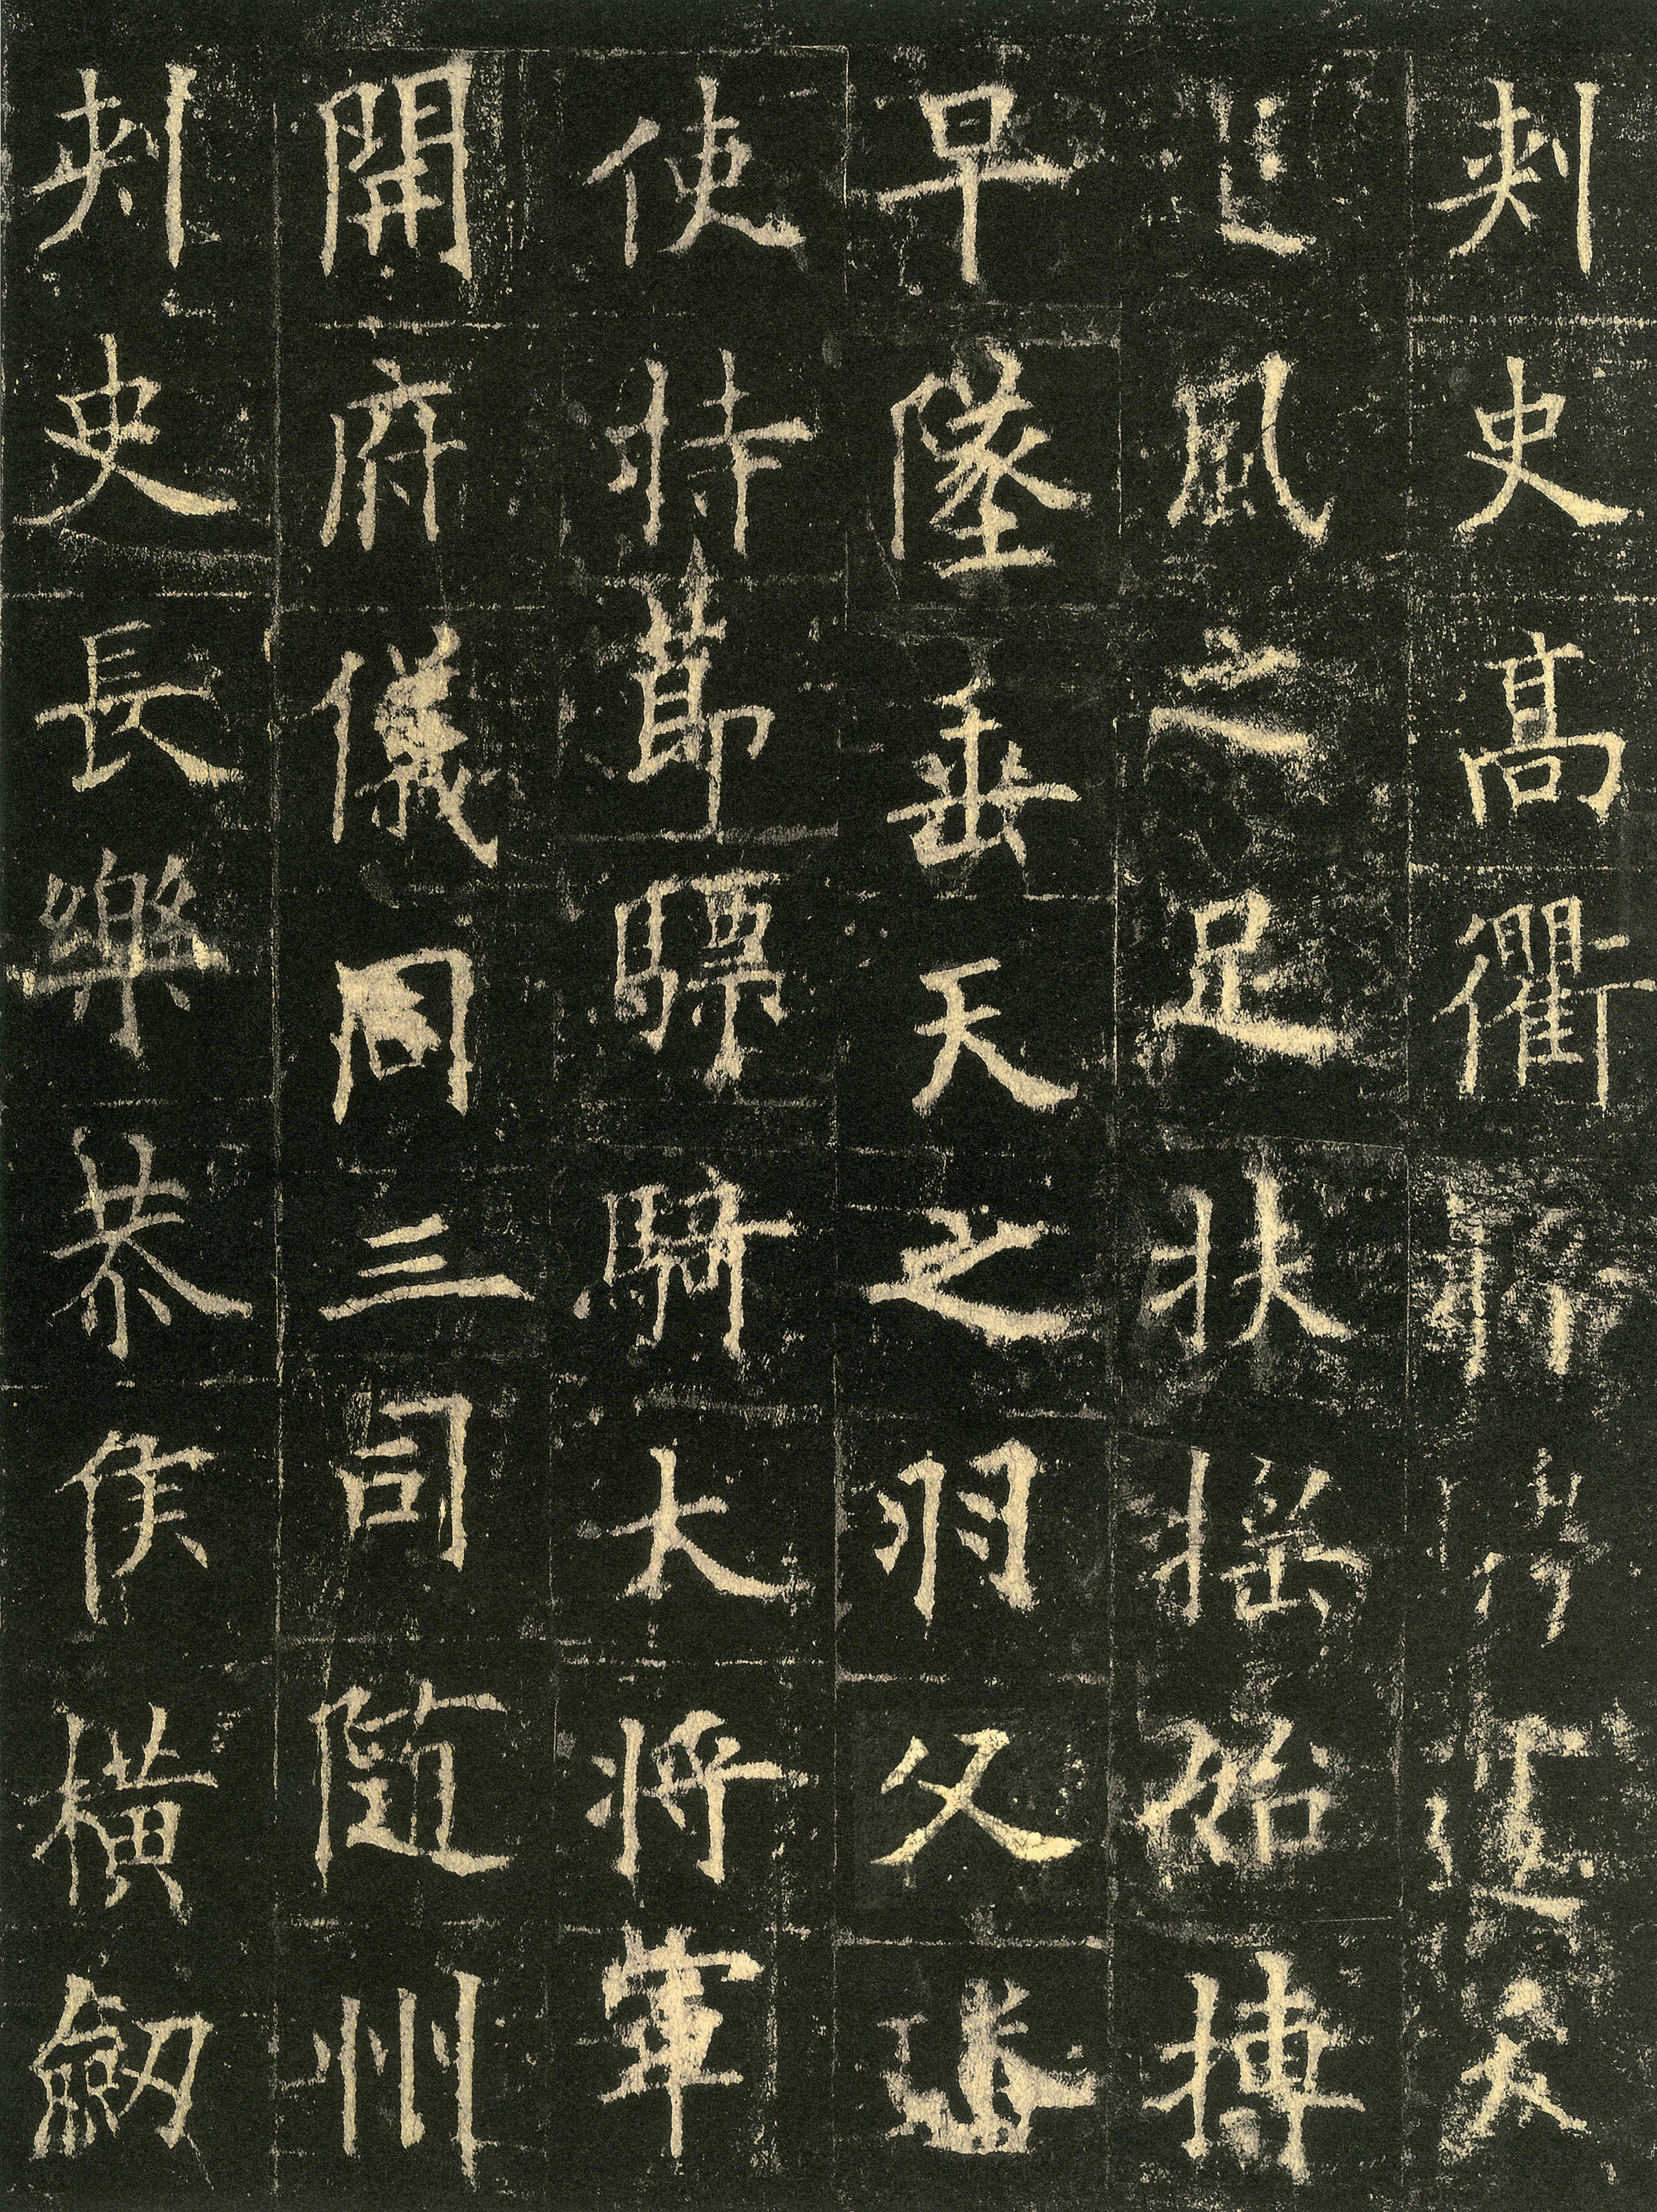 刺史高衢夭
風之足扶搖始搏
早墜垂天之羽父
使持節驃騎大將軍
開府儀同三司隨州
刺史長樂恭侯橫劒